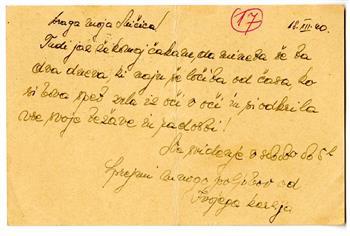 Draga moja Mičica!
17
12. III. 40.
Tudi jaz že komaj čakam, da mineta še ta
dva dneva, ki naju še ločita od časa, ko
si bova spet zrla iz oči v oči in si odkrila
vse svoje težave in radosti!
Na svidenje v soboto ob 5h
Sprejmi mnogo poljubov od
Tvojega